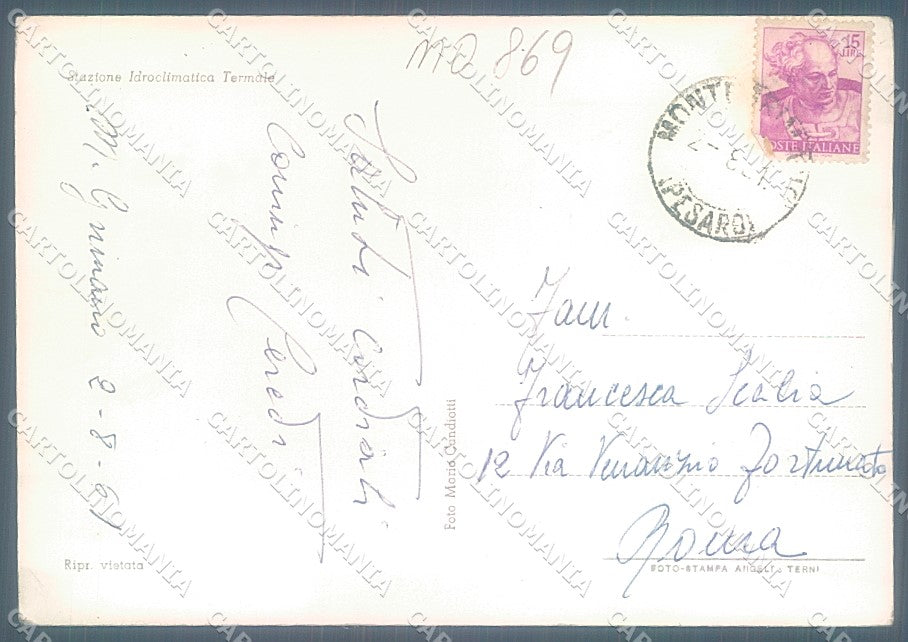 MO 869
Stazione Idroclimatica Termale
M. Grimano 2-8-61
Saluti cordiali
Ripr. vietata
Foto Mario Candiotti
15
LIRE
POSTE ITALIANE
MONTE
(PESARO)
Fam.
Francesca Scalia
12 Via Venanzio Fortunato
Roma
FOTO-STAMPA ANGELI - TERNI
CARTOLINOMANIA